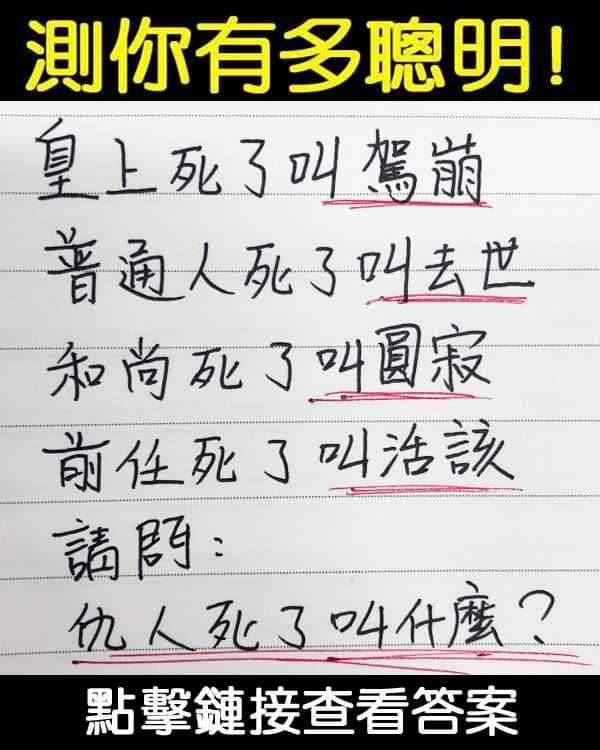 測你有多聰明!
皇上死了叫駕崩
普通人死了叫去世
和尚死了叫圓寂
前任死了叫活該
請問:
仇人死了叫什麼?
點擊鏈接查看答案